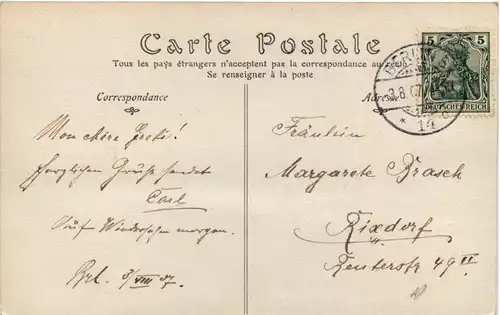 Carte Postale
Tous les pays étrangers n'acceptent pas la correspondance au recto
Se renseigner à la poste
Correspondance
Adresse
5 5
DEUTSCHES REICH
BERLIN
3.8.07
* 14
Mon chère Greti!
Herzlichen Gruß sendet
Carl
Auf Wiedersehen morgen.
Brl. 3/VIII 07.
Fräulein
Margarete Brasch
Rixdorf
Reuterstr 49 II